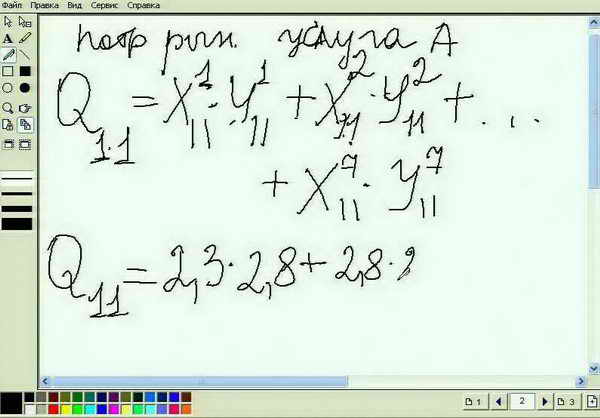 Файл Правка Вид Сервис Справка
потр рын. услуга А
Q₁.₁ = X¹₁₁ · Y¹₁₁ + X²₁₁ · Y²₁₁ + . . .
+ X⁷₁₁ · Y⁷₁₁
Q₁₁ = 2,3 · 2,8 + 2,8 ·
1 2 3